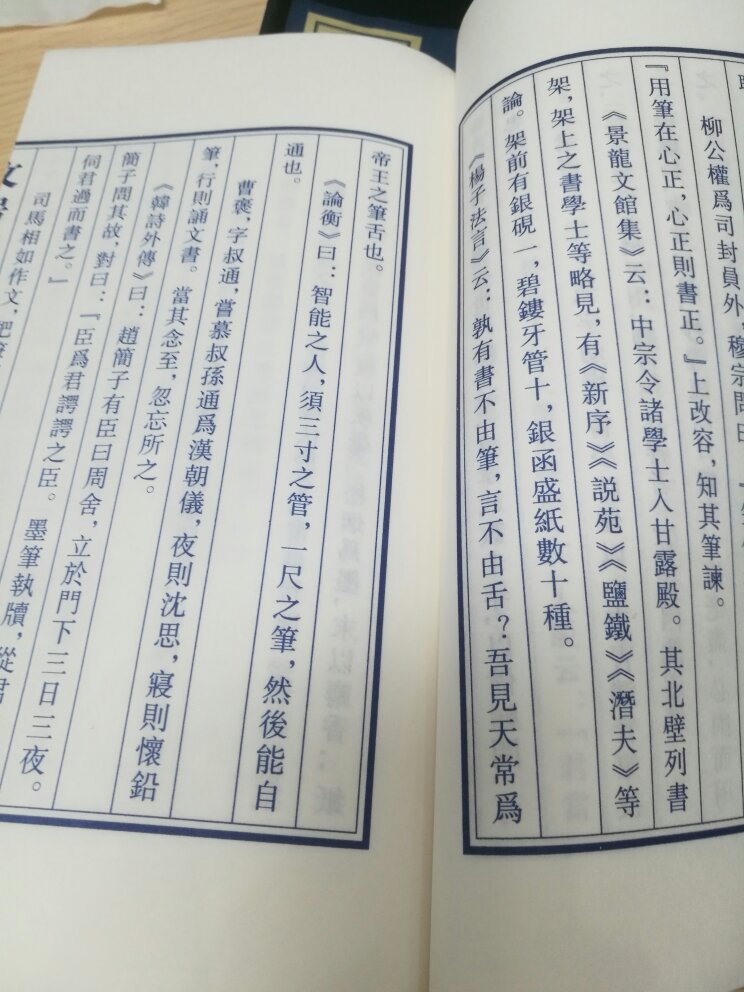 柳公權爲司封員外，穆宗問曰
『用筆在心正，心正則書正。』上改容，知其筆諫。
《景龍文館集》云：中宗令諸學士入甘露殿。其北壁列書
架，架上之書學士等略見，有《新序》《説苑》《鹽鐵》《潛夫》等
論。架前有銀硯一，碧鏤牙管十，銀函盛紙數十種。
《楊子法言》云：孰有書不由筆，言不由舌？吾見天常爲
帝王之筆舌也。
《論衡》曰：智能之人，須三寸之管，一尺之筆，然後能自
通也。
曹褒，字叔通，嘗慕叔孫通爲漢朝儀，夜則沈思，寢則懷鉛
筆，行則誦文書。當其念至，忽忘所之。
《韓詩外傳》曰：趙簡子有臣曰周舍，立於門下三日三夜。
簡子問其故，對曰：『臣爲君諤諤之臣。墨筆執牘，從君
伺君過而書之。』
司馬相如作文，把筆